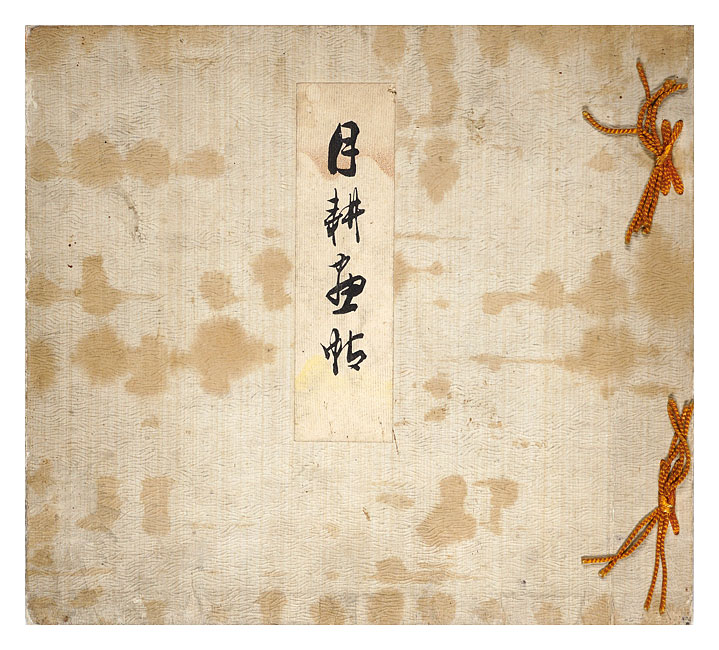 月耕画帖